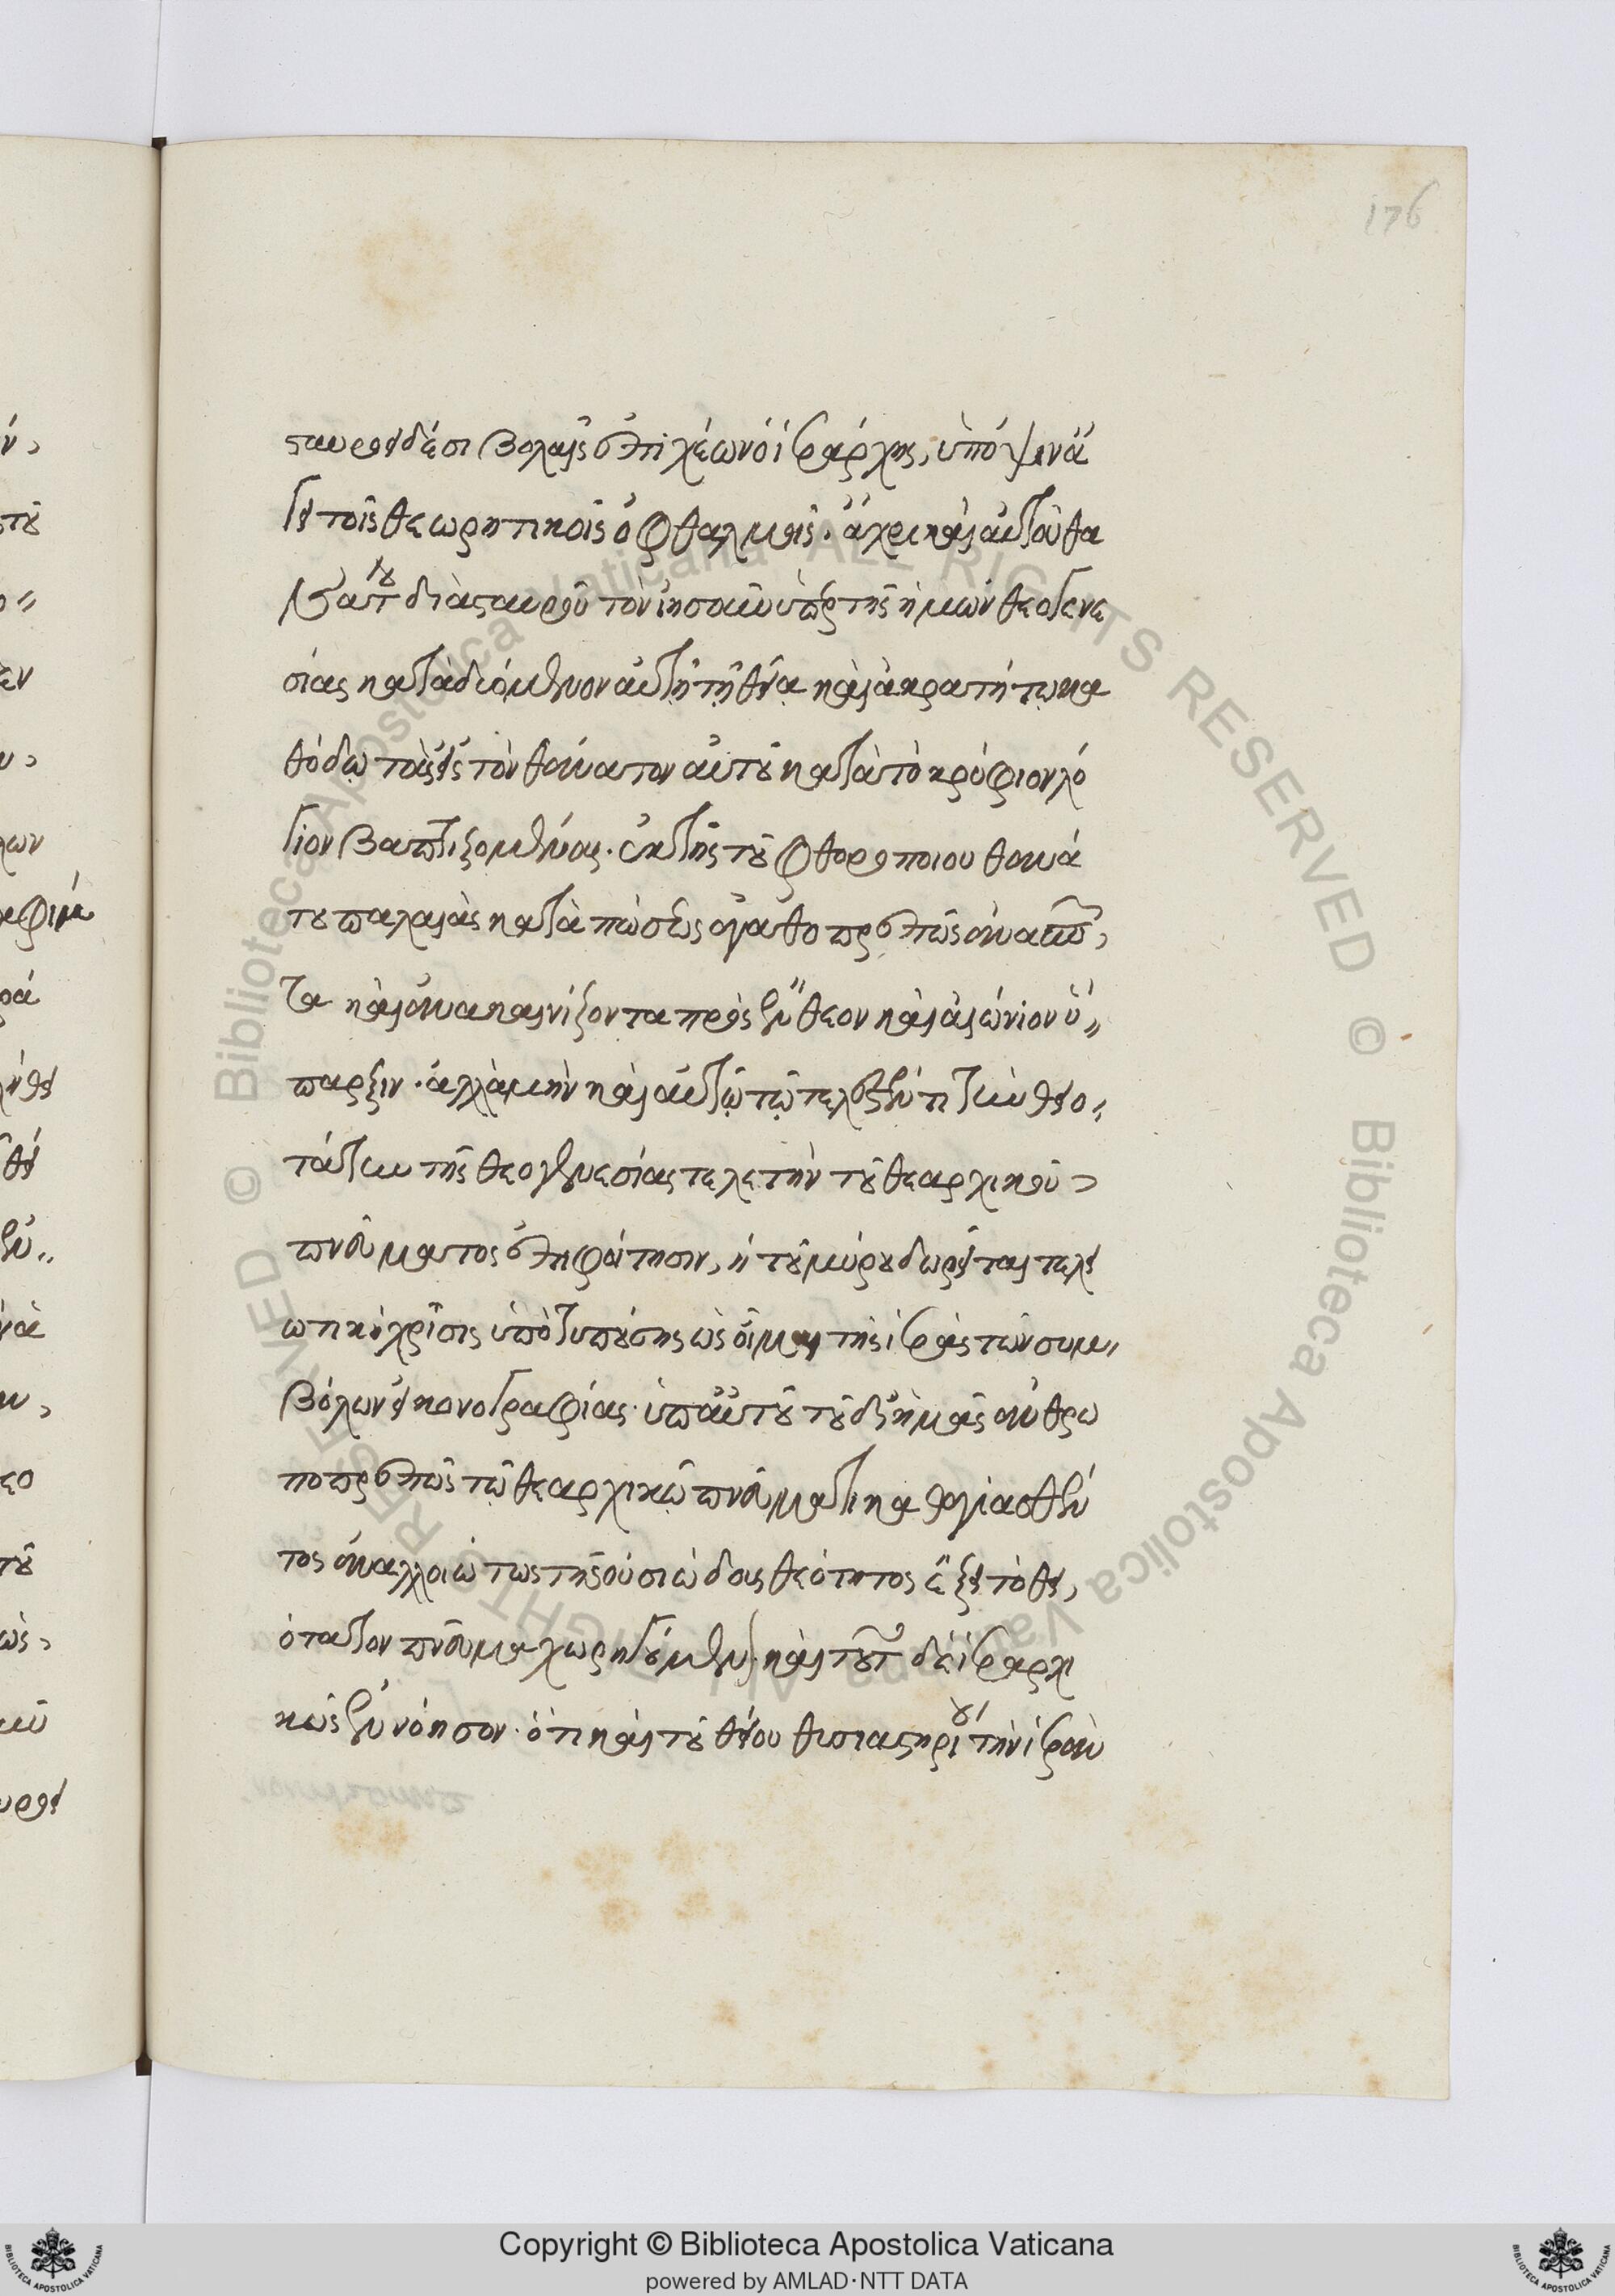 176
σταυροειδέσι βολαῖς ἐπιχέων ὁ ἱεράρχης, ὑπ' ὄψιν ἄ
γει τοῖς θεωρητικοῖς ὀφθαλμοῖς· ἄχρι καὶ αὐτοῦ θα
νάτου διὰ σταυροῦ τὸν ἰησοῦν ὑπὲρ τῆς ἡμῶν θεογενε
σίας καταδυόμενον αὐτῇ τῇ θείᾳ καὶ ἀκρατήτῳ κα
θόδῳ τοὺς εἰς τὸν θάνατον αὐτοῦ κατὰ τὸ κρύφιον λό
γιον βαπτιζομένους· ἐκ τῆς τοῦ φθοροποιοῦ θανά
του παλαιᾶς καταπώσεως ἀγαθοπρεπῶς ἀνασπῶν
τα καὶ ἀνακαινίζοντα πρὸς ἔνθεον καὶ αἰώνιον ὕ
παρξιν· ἀλλὰ μὴν καὶ αὐτῷ τῷ τελεσθέντι τὴν θειο
τάτην τῆς θεογενεσίας τελετὴν τοῦ θεαρχικοῦ
πνεύματος ἐπιφοίτησιν, ἡ τοῦ μύρου δωρεῖται τελει
ωτικὴ χρίσις ὑποτυπούσης ὡς οἶμαι τῆς ἱερᾶς τῶν συμ
βόλων εἰκονογραφίας· ὑπ' αὐτοῦ τοῦ δι' ἡμᾶς ἀνθρω
ποπρεπῶς τῷ θεαρχικῷ πνεύματι καθαγιασθέν
τος ἀναλλοιώτως τῆς οὐσιώδους θεότητος ἕξει τὸ θει
ότατον πνεῦμα χωρηγούμενον· καὶ τοῦτο δὲ ἱεραρχι
κῶς ἐννόησον· ὅτι καὶ τοῦ θείου θυσιαστηρίου τὴν ἱερὰν
Copyright © Biblioteca Apostolica Vaticana
powered by AMLAD·NTT DATA